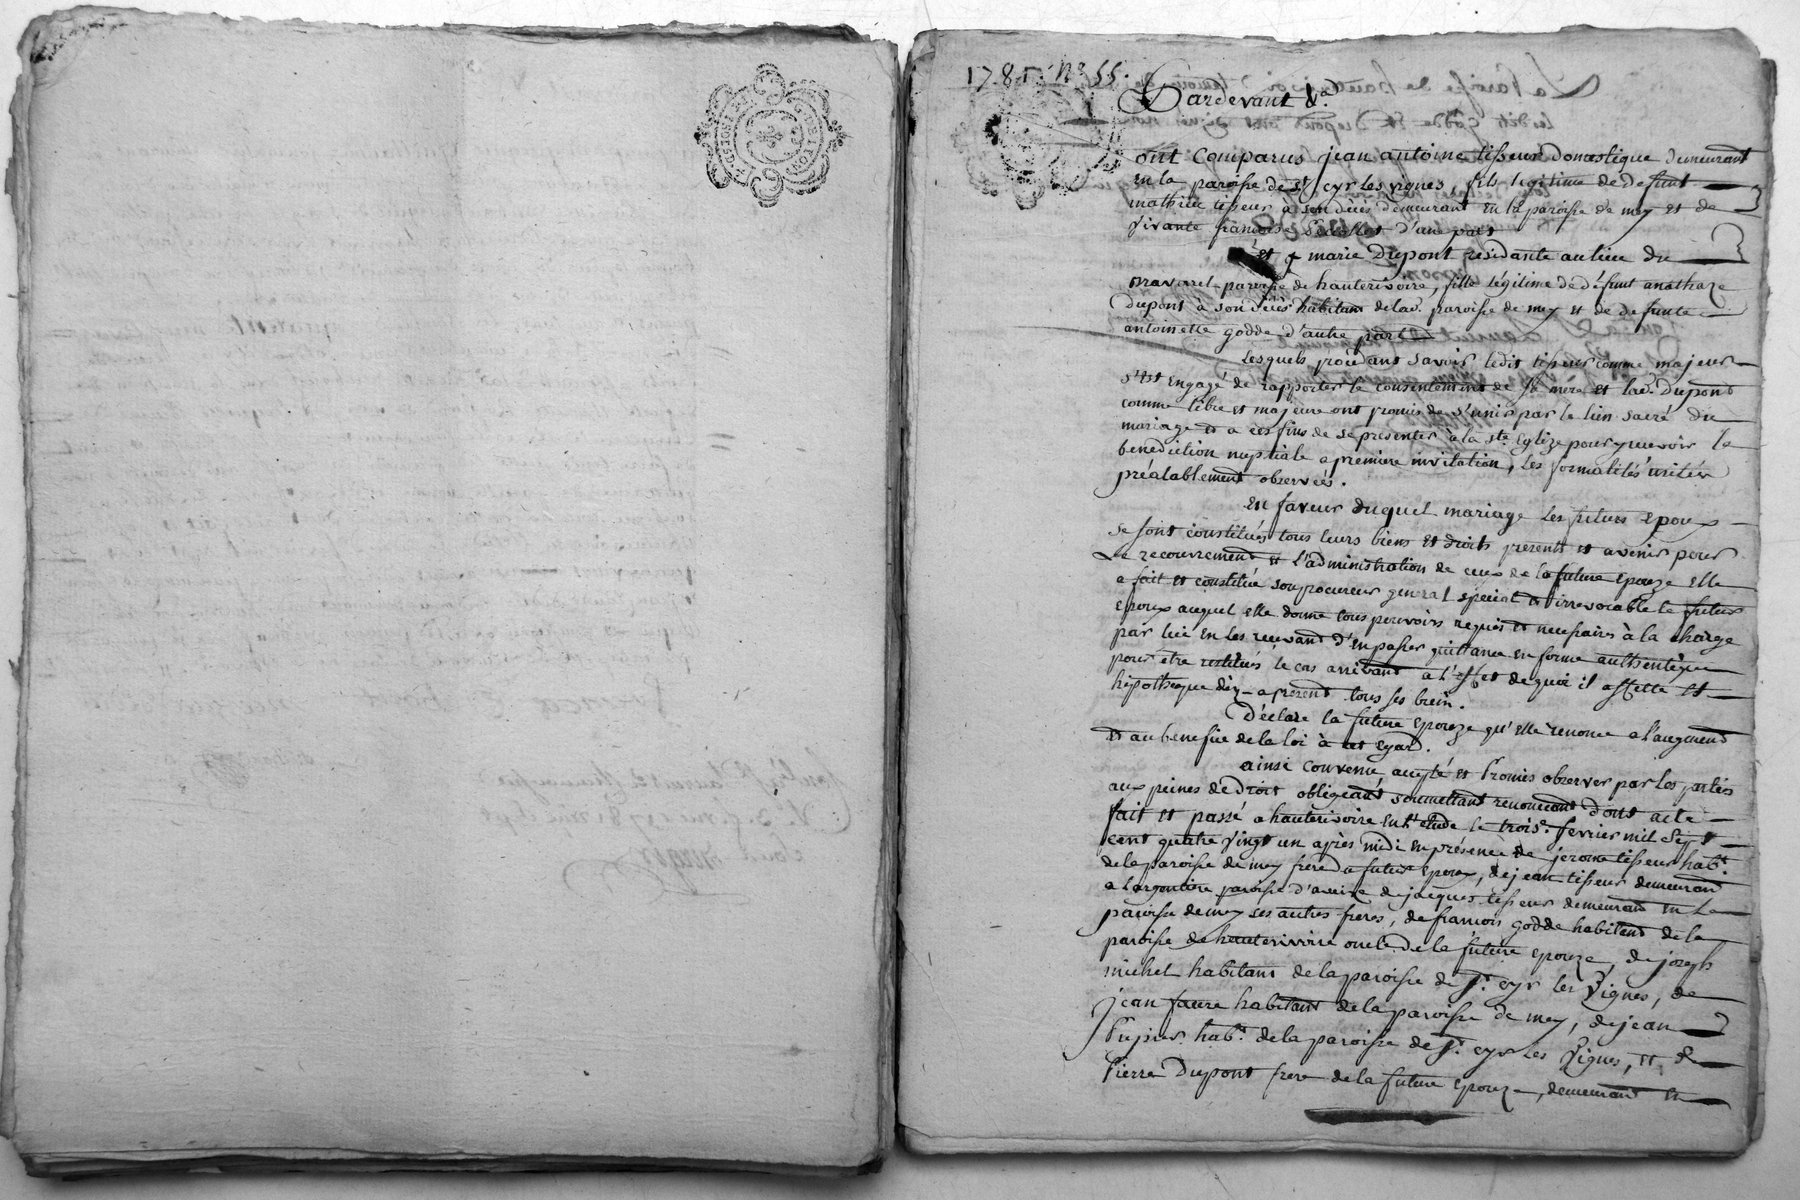 1781 N° 55.
Pardevant &a
ont comparus jean antoine tisseur domestique demeurant
en la paroisse de st cyr les vignes, fils legitime de defunt
mathieu tisseur à son décès demeurant en la paroisse de mey et de
vivante françoise d'une part
et marie Dupont residante au lieu du
paroisse de hauterivoire, fille légitime de défunt anathaze
Dupont à son décès habitant de lad. paroisse de mey et de defunte
antoinette godde d'autre part
Lesquels procédant savoir ledit tisseur comme majeur
s'est engagé de rapporter le consentement de sa mère et lad. Dupont
comme libre et majeure ont promis de s'unir par le lien sacré du
mariage et a ces fins de se presenter à la ste Eglize pour y recevoir la
benediction nuptiale a premiere invitation, les formalités usitées
préalablement observées.
En faveur duquel mariage les futurs epoux
se sont constitués tous leurs biens et droits presents et avenir pour
Le recouvrement et l'administration de ceux de la future epouze elle
a fait et constitué son procureur general special et irrevocable le futur
epoux auquel elle donne tous pouvoirs requis et necessaires à la charge
par lui en les recevant d'en passer quittance en forme authentique
pour être restitués le cas arrivant à l'effet de quoi il affecte et
hipotheque dez a present tous ses biein.
Déclare la future epouze qu'elle renonce a l'augment
et au benefice de la loi à cet egard.
ainsi convenu, accepté et Promis observer par les parties
aux peines de Droit obligeant soumettant renonceant dont acte
fait et passé a hauterivoire en l'etude le trois. fevrier mil sept
cent quatre vingt un après midi en présence de jerome tisseur habt.
de la paroisse de mey frere du futur epoux, de jean tisseur demeurant
a Largentiere paroisse d'aveize de jacques tisseur demeurant en la
paroisse de mey ses autres freres, de francois godde habitant de la
paroisse de hauterivoire oncle de la future epouze, de jozeph
michel habitant de la paroisse de St. cyr les Vignes, de
jean faure habitant de la paroisse de mey, de jean
habt. de la paroisse de St. cyr les Vignes, et de
Pierre Dupont frere de la future epouze, demeurant en